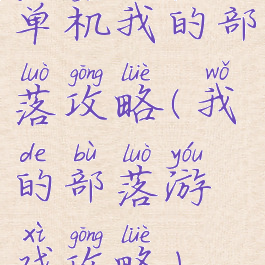 单机我的部
luò gōng lüè wǒ
落攻略(我
de bù luò yóu
的部落游
xì gōng lüè
戏攻略)